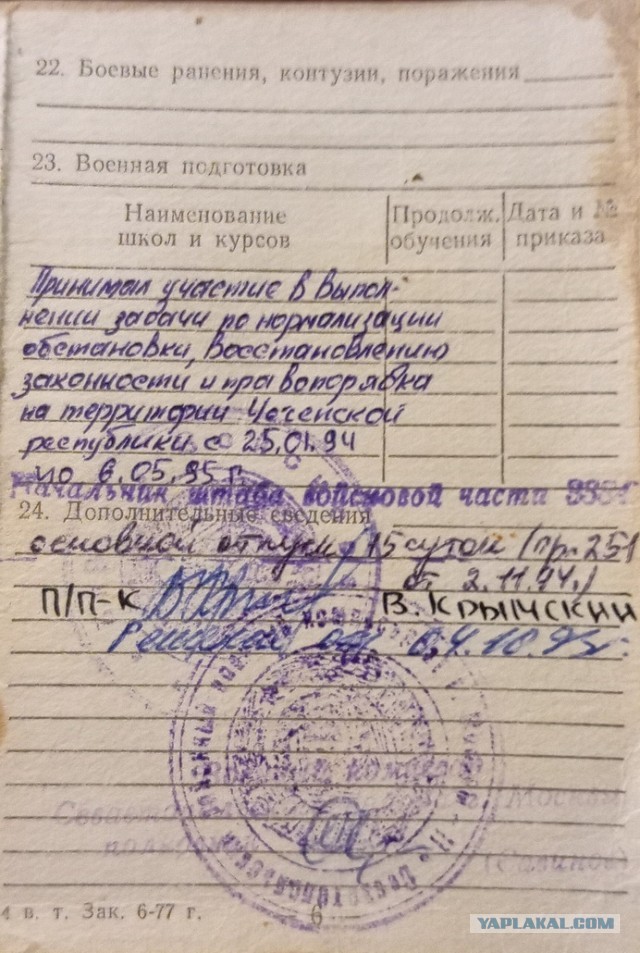 22. Боевые ранения, контузии, поражения
23. Военная подготовка
Наименование школ и курсов
Продолж. обучения
Дата и № приказа
Принимал участие в выпол-
нении задачи по нормализации
обстановки, восстановлению
законности и правопорядка
на территории Чеченской
республики с 25.01.94
по 6.05.95 г.
Начальник штаба войсковой части
24. Дополнительные сведения
основной отпуск 15 суток (пр. 251
от 2.11.94.)
П/П-К В. Крымский
Севаст Москвы
полков (Савинов)
в. т. Зак. 6-77 г.
6
YAPLAKAL.COM